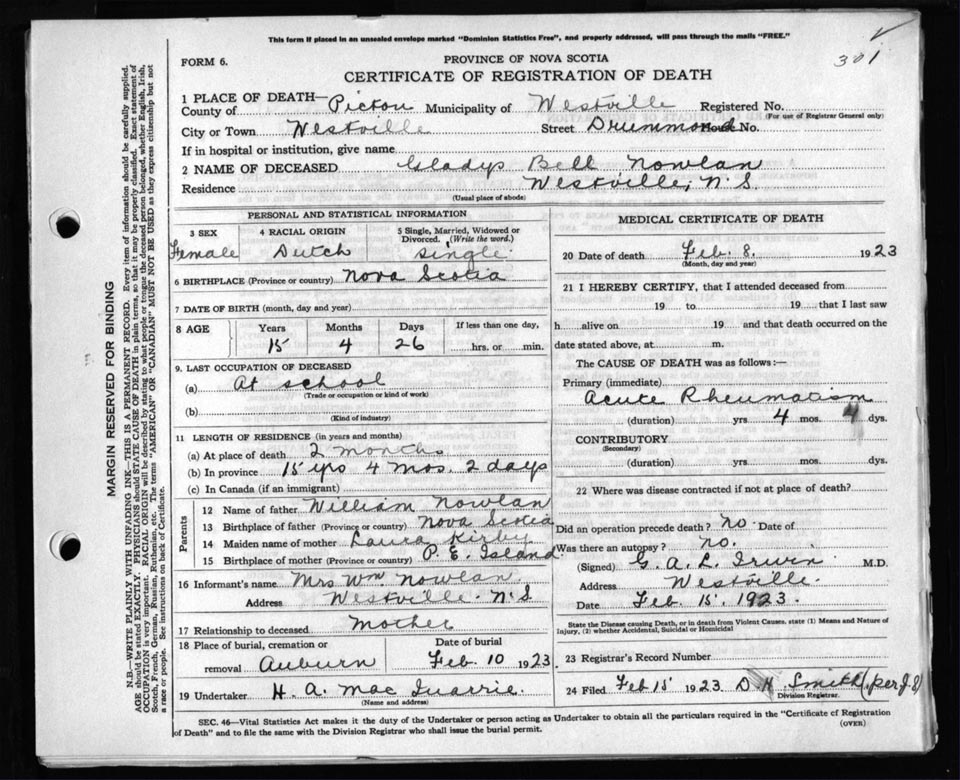 This form if placed in an unsealed envelope marked "Dominion Statistics Free", and properly addressed, will pass through the mails "FREE."
301
FORM 6.
PROVINCE OF NOVA SCOTIA
CERTIFICATE OF REGISTRATION OF DEATH
1 PLACE OF DEATH—
County of Pictou Municipality of Westville Registered No.
(For use of Registrar General only)
City or Town Westville Street Drummond House No.
If in hospital or institution, give name
2 NAME OF DECEASED Gladys Bell Nowlan
Residence Westville, N.S.
(Usual place of abode)
PERSONAL AND STATISTICAL INFORMATION
3 SEX 4 RACIAL ORIGIN 5 Single, Married, Widowed or Divorced. (Write the word.)
Female Dutch single
6 BIRTHPLACE (Province or country) Nova Scotia
7 DATE OF BIRTH (month, day and year)
8 AGE Years Months Days If less than one day,
15 4 26 hrs. or min.
9. LAST OCCUPATION OF DECEASED
(a) At school
(Trade or occupation or kind of work)
(b)
(Kind of industry)
11 LENGTH OF RESIDENCE (in years and months)
(a) At place of death 2 months
(b) In province 15 yrs 4 mos. 2 days
(c) In Canada (if an immigrant)
Parents
12 Name of father William Nowlan
13 Birthplace of father (Province or country) Nova Scotia
14 Maiden name of mother Laura Kirby
15 Birthplace of mother (Province or country) P. E. Island
16 Informant's name Mrs Wm. Nowlan
Address Westville N.S.
17 Relationship to deceased Mother
18 Place of burial, cremation or Date of burial
removal Auburn Feb. 10 1923.
19 Undertaker H. A. Mac Quarrie.
(Name and address)
MEDICAL CERTIFICATE OF DEATH
20 Date of death Feb. 8. 1923
(Month, day and year)
21 I HEREBY CERTIFY, that I attended deceased from
19 to 19 that I last saw
h alive on 19 and that death occurred on the
date stated above, at m.
The CAUSE OF DEATH was as follows:—
Primary (immediate)
Acute Rheumatism
(duration) yrs 4 mos. 4 dys.
CONTRIBUTORY
(Secondary)
(duration) yrs. mos. dys.
22 Where was disease contracted if not at place of death?
Did an operation precede death? no Date of
Was there an autopsy? no.
(Signed) G. A. L. Irwin M.D.
Address Westville.
Date Feb 15. 1923.
State the Disease causing Death, or in death from Violent Causes, state (1) Means and Nature of Injury, (2) whether Accidental, Suicidal or Homicidal
23 Registrar's Record Number
24 Filed Feb 15 1923. D H Smith (per J.S)
Division Registrar.
SEC. 46—Vital Statistics Act makes it the duty of the Undertaker or person acting as Undertaker to obtain all the particulars required in the "Certificate of Registration
of Death" and to file the same with the Division Registrar who shall issue the burial permit.
(OVER)
MARGIN RESERVED FOR BINDING
N.B.—WRITE PLAINLY WITH UNFADING INK—THIS IS A PERMANENT RECORD. Every item of information should be carefully supplied.
AGE should be stated EXACTLY. PHYSICIANS should STATE CAUSE OF DEATH in plain terms, so that it may be properly classified. Exact statement of
OCCUPATION is very important. RACIAL ORIGIN will be described by stating to what people or tongue the deceased person belonged, whether English, Irish,
Scotch, French, German, Russian, Ruthenian, etc. The terms "AMERICAN" OR "CANADIAN" MUST NOT BE USED as they express citizenship but not
a race or people. See instructions on back of Certificate.